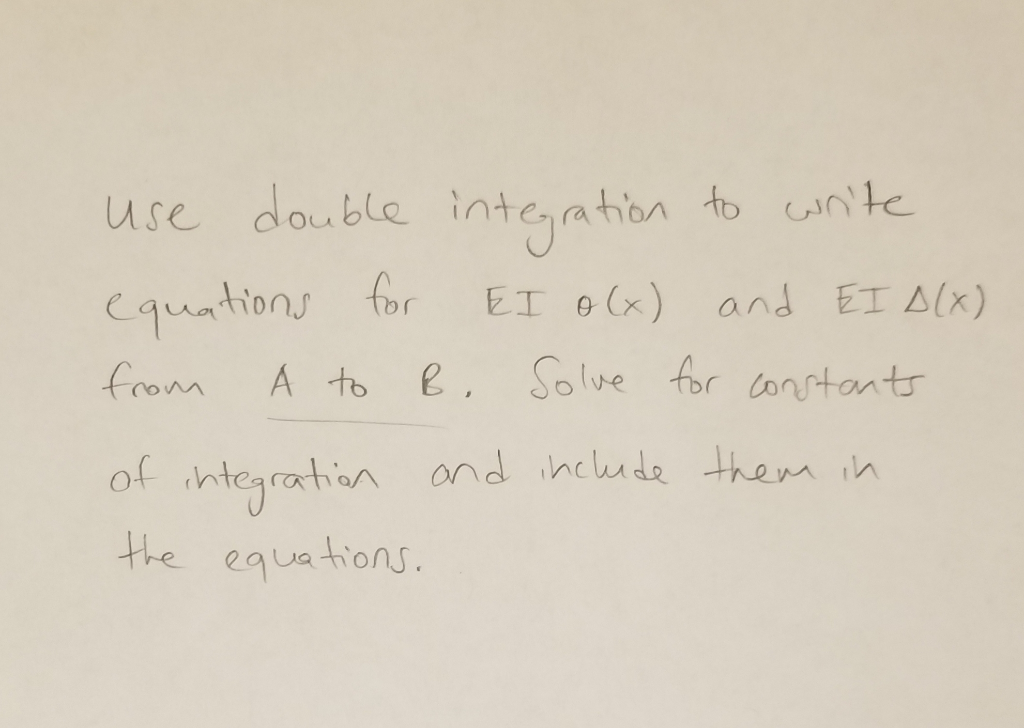 Use double integration to write
equations for EI θ(x) and EI Δ(x)
from A to B. Solve for constants
of integration and include them in
the equations.